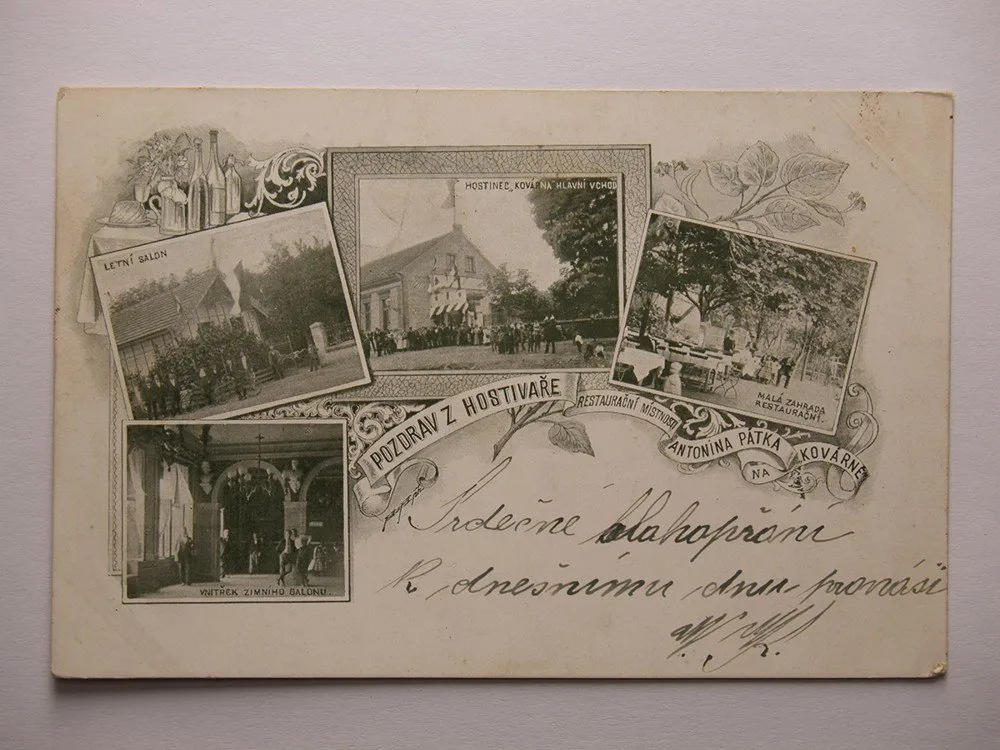 HOSTINEC „KOVÁRNA HLAVNÍ VCHOD
LETNÍ SALON
MALÁ ZAHRADA
RESTAURAČNÍ.
POZDRAV Z HOSTIVAŘE
RESTAURAČNÍ MÍSTNOSTI
ANTONÍNA PÁTKA
NA
KOVÁRNĚ
VNITŘEK ZIMNÍHO SALONU.
Srdečné blahopřání
k dnešnímu dnu pronáší